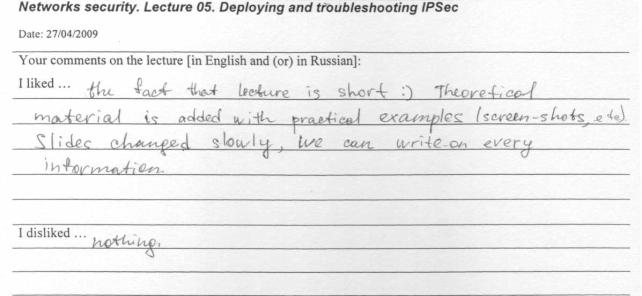 Networks security. Lecture 05. Deploying and troubleshooting IPSec
Date: 27/04/2009
Your comments on the lecture [in English and (or) in Russian]:
I liked ... the fact that lecture is short :) Theoretical
material is added with practical examples (screen-shots, etc).
Slides changed slowly, we can write on every
information.
I disliked ... nothing.